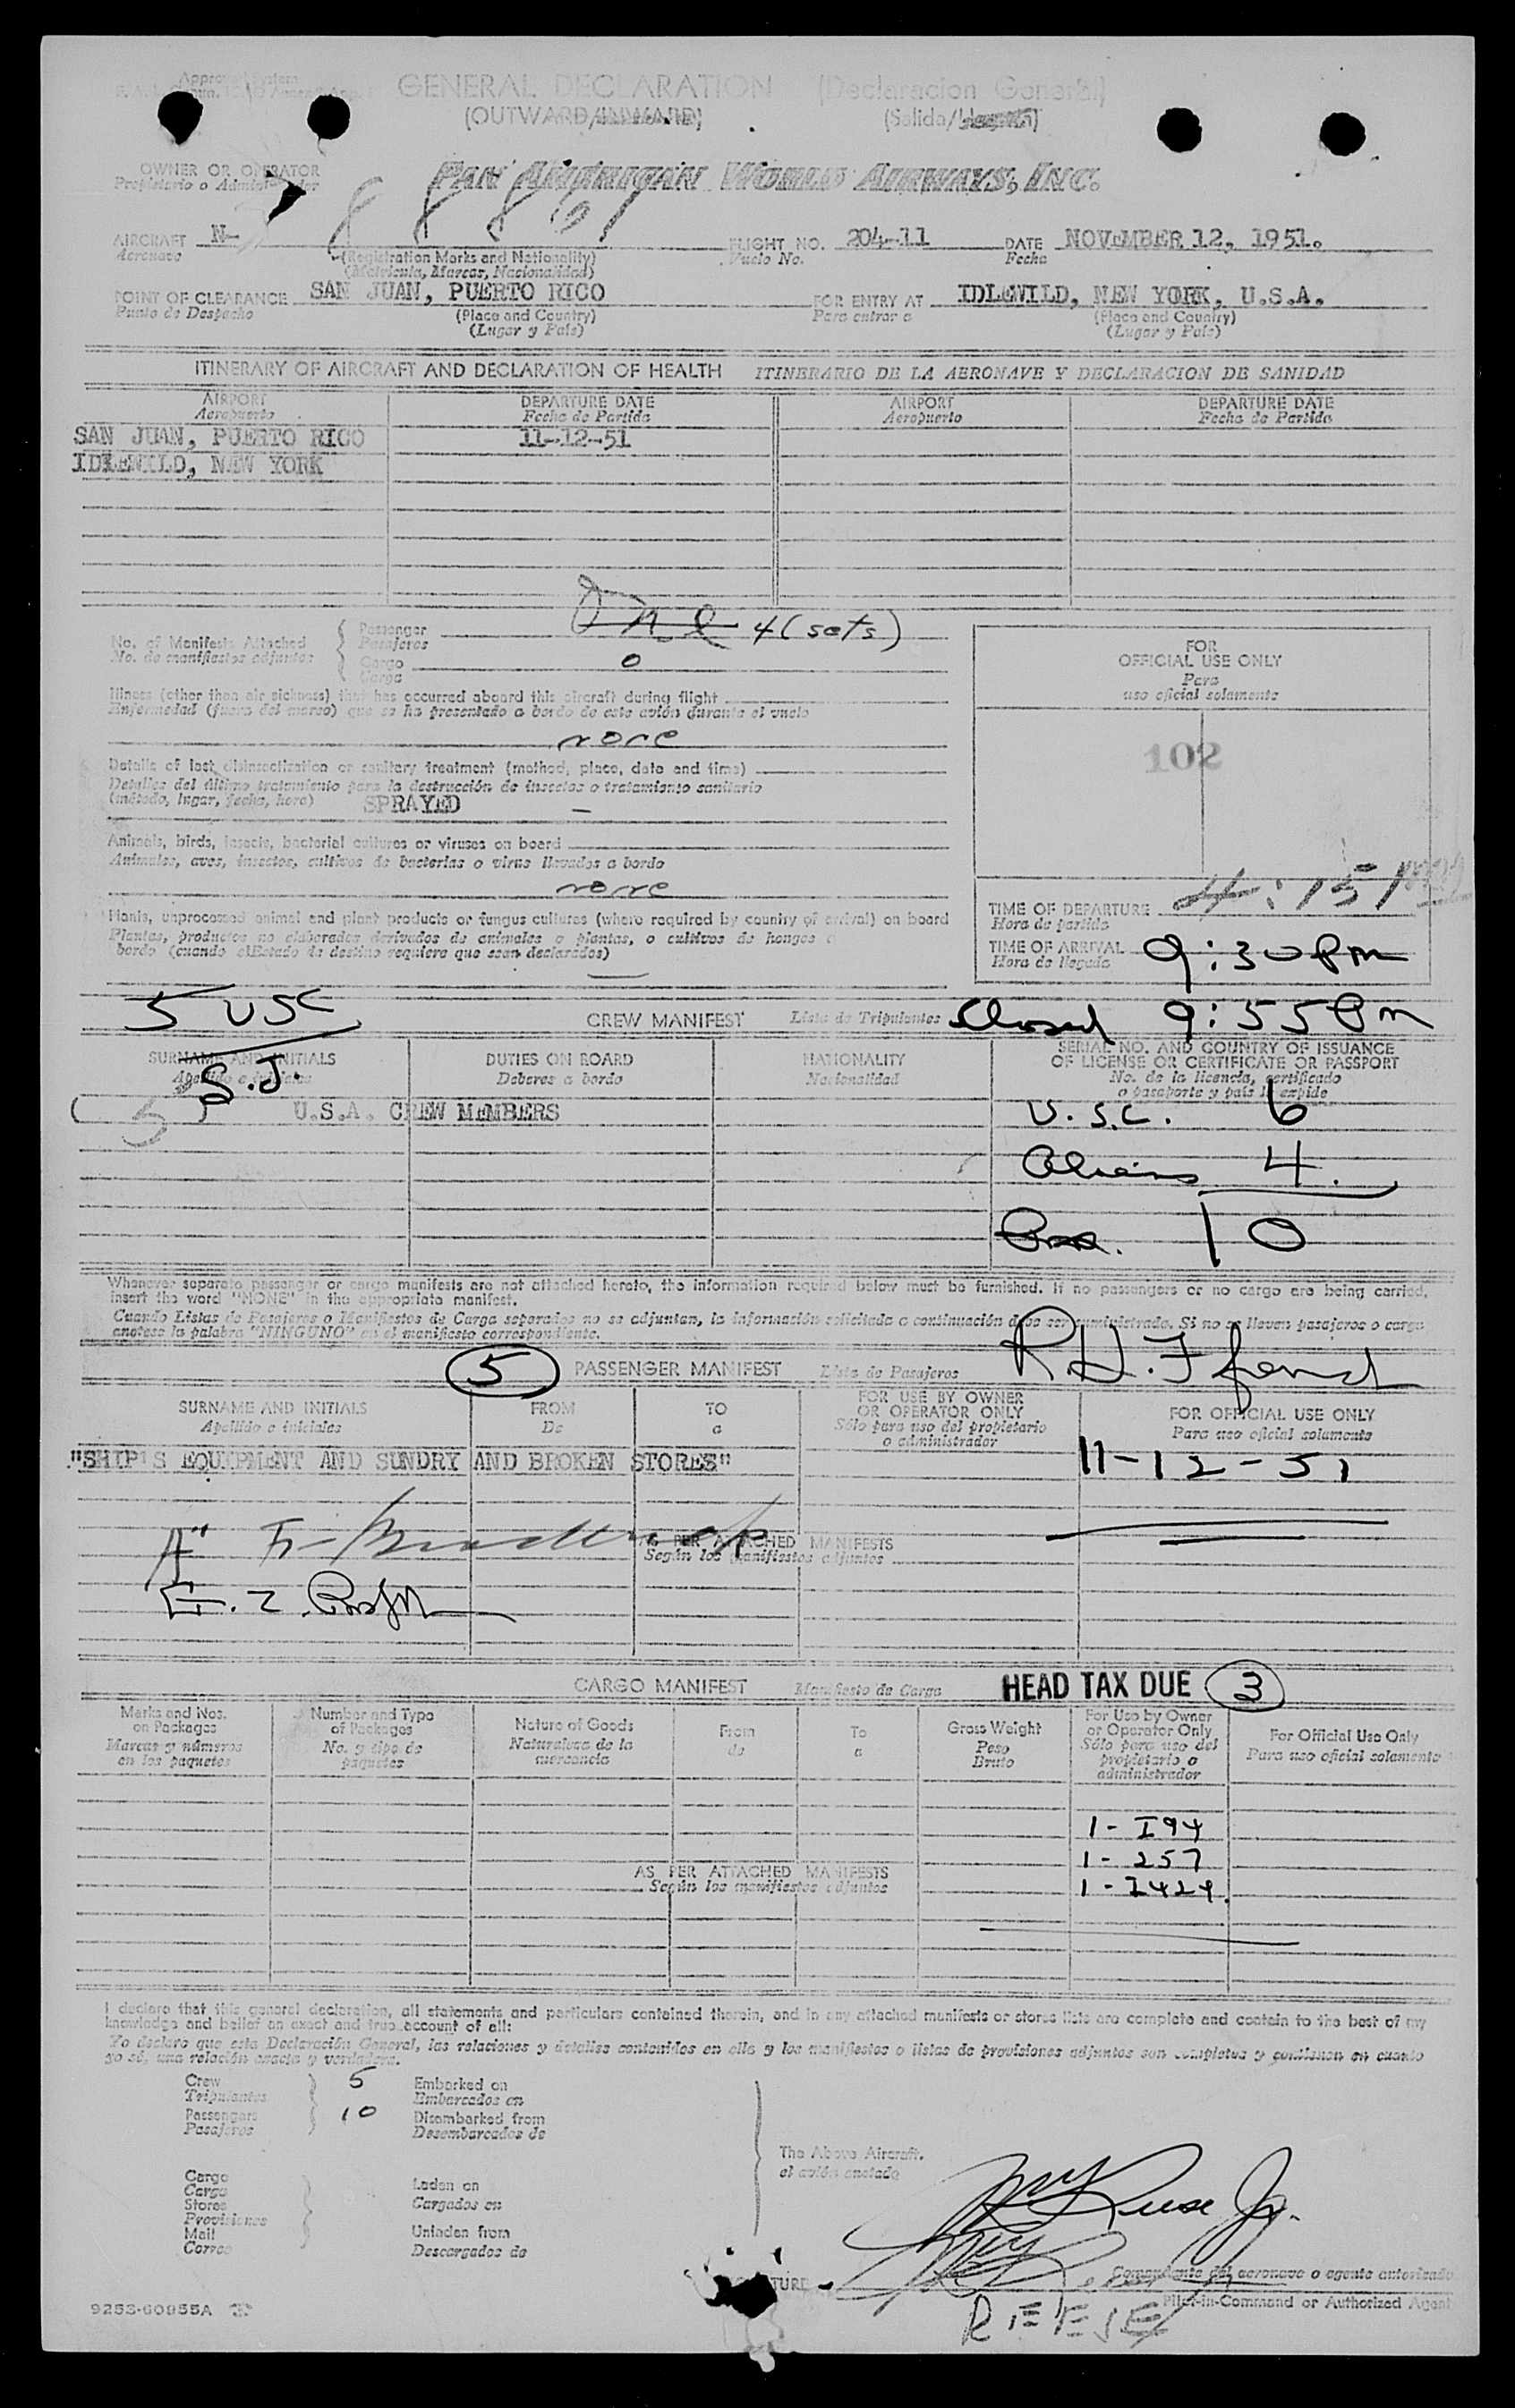 GENERAL DECLARATION (Declaracion General)
(OUTWARD/INWARD) (Salida/
OWNER OR OPERATOR
Propietario o Administrador
PAN AMERICAN WORLD AIRWAYS, INC.
AIRCRAFT N- FLIGHT NO. 204-11 DATE NOVEMBER 12, 1951.
Aeronave (Registration Marks and Nationality) Vuelo No. Fecha
(Matricula, Marcas, Nacionalidad)
POINT OF CLEARANCE SAN JUAN, PUERTO RICO FOR ENTRY AT IDLEWILD, NEW YORK, U.S.A.
Punto de Despacho (Place and Country) Para entrar a (Place and Country)
(Lugar y País) (Lugar y País)
ITINERARY OF AIRCRAFT AND DECLARATION OF HEALTH ITINERARIO DE LA AERONAVE Y DECLARACION DE SANIDAD
AIRPORT DEPARTURE DATE AIRPORT DEPARTURE DATE
Aeropuerto Fecha de Partida Aeropuerto Fecha de Partida
SAN JUAN, PUERTO RICO 11-12-51
IDLEWILD, NEW YORK
No. of Manifests Attached Passenger One 4 (sets)
No. de manifiestos adjuntos Pasajeros
Cargo 0
Carga
FOR
OFFICIAL USE ONLY
Para
uso oficial solamente
102
Illness (other than air sickness) that has occurred aboard this aircraft during flight
Enfermedad (fuera del mareo) que se ha presentado a bordo de este avión durante el vuelo
none
Details of last disinsectization or sanitary treatment (method, place, date and time)
Detalles del último tratamiento para la destrucción de insectos o tratamiento sanitario
(método, lugar, fecha, hora) SPRAYED —
Animals, birds, insects, bacterial cultures or viruses on board
Animales, aves, insectos, cultivos de bacterias o virus llevados a bordo
none
Plants, unprocessed animal and plant products or fungus cultures (where required by country of arrival) on board
Plantas, productos no elaborados derivados de animales o plantas, o cultivos de hongos a
bordo (cuando el Estado de destino requiera que sean declarados)
TIME OF DEPARTURE 4:15 P
Hora de partida
TIME OF ARRIVAL 9:30 PM
Hora de llegada
5 USC
CREW MANIFEST Lista de Tripulantes Closed 9:55 PM
SURNAME AND INITIALS DUTIES ON BOARD NATIONALITY SERIAL NO. AND COUNTRY OF ISSUANCE
Apellido e iniciales Deberes a bordo Nacionalidad OF LICENSE OR CERTIFICATE OR PASSPORT
S.J. No. de la licencia, certificado
o pasaporte y país la expide
(5) U.S.A. CREW MEMBERS U.S.C. 6
Aliens 4.
10
Whenever separate passenger or cargo manifests are not attached hereto, the information required below must be furnished. If no passengers or no cargo are being carried,
insert the word "NONE" in the appropriate manifest.
Cuando Listas de Pasajeros o Manifiestos de Carga separados no se adjuntan, la información solicitada a continuación debe ser suministrada. Si no se llevan pasajeros o carga
anótese la palabra "NINGUNO" en el manifiesto correspondiente.
5 PASSENGER MANIFEST Lista de Pasajeros
SURNAME AND INITIALS FROM TO FOR USE BY OWNER
OR OPERATOR ONLY FOR OFFICIAL USE ONLY
Apellido e iniciales De a Sólo para uso del propietario Para uso oficial solamente
o administrador
"SHIP'S EQUIPMENT AND SUNDRY AND BROKEN STORES" 11-12-51
AS PER ATTACHED MANIFESTS
Según los manifiestos adjuntos
CARGO MANIFEST Manifiesto de Carga HEAD TAX DUE 3
Marks and Nos. Number and Type Nature of Goods From To Gross Weight For Use by Owner For Official Use Only
on Packages of Packages Naturaleza de la de a Peso or Operator Only Para uso oficial solamente
Marcas y números No. y tipo de mercancía Bruto Sólo para uso del
en los paquetes paquetes propietario o
administrador
1 - I94
1 - 257
AS PER ATTACHED MANIFESTS
Según los manifiestos adjuntos 1 - I424.
I declare that this general declaration, all statements and particulars contained therein, and in any attached manifests or stores lists are complete and contain to the best of my
knowledge and belief an exact and true account of all:
Yo declaro que esta Declaración General, las relaciones y detalles contenidos en ella y los manifiestos o listas de provisiones adjuntos son completos y contienen en cuanto
yo sé, una relación exacta y verdadera.
Crew 5 Embarked on
Tripulantes Embarcados en
Passengers 10 Disembarked from
Pasajeros Desembarcados de
The Above Aircraft.
el avión anotado
Cargo
Carga Laden on
Stores Cargados en
Provisiones
Mail Unladen from
Correo Descargados de
Comandante del aeronave o agente autorizado
Pilot-in-Command or Authorized Agent
REESE
9253-60955A